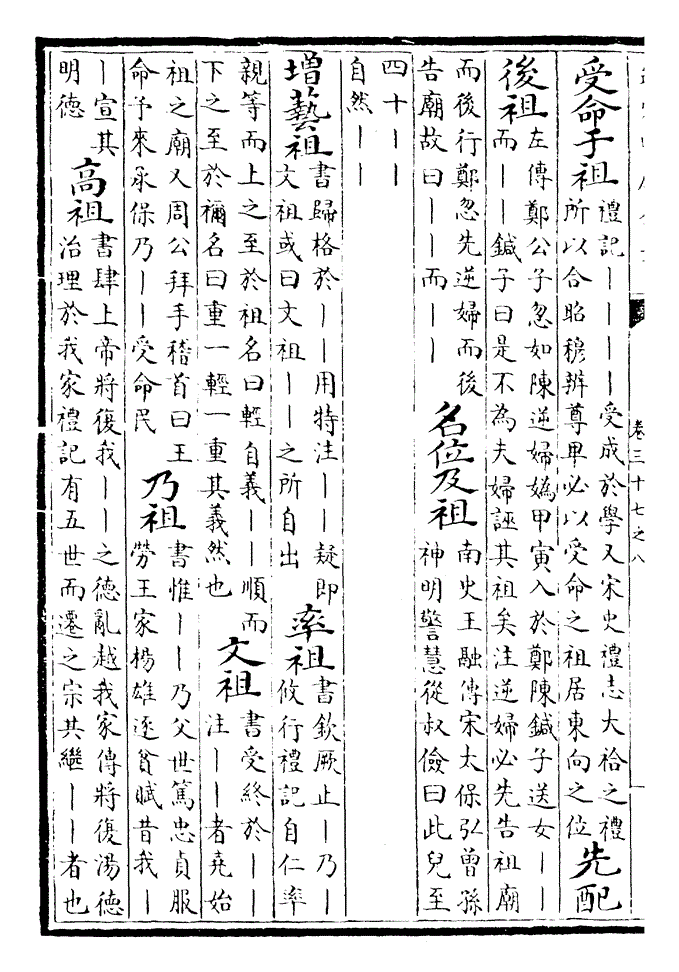 卷三十七之八
受命于祖
禮記||||受成於學又宋史禮志大祫之禮
所以合昭穆辨尊卑必以受命之祖居東向之位
先配
後祖
左傳鄭公子忽如陳逆婦媯甲寅入於鄭陳鍼子送女||
而||鍼子曰是不為夫婦誣其祖矣注逆婦必先告祖廟
而後行鄭忽先逆婦而後
告廟故曰||而||
名位及祖
南史王融傳宋太保弘曾孫
神明警慧從叔儉曰此兒至
四十||
自然||
增藝祖
書歸格於||用特注||疑即
文祖或曰文祖||之所自出
率祖
書欽厥止|乃|
攸行禮記自仁率
親等而上之至於祖名曰輕自義||順而
下之至於禰名曰重一輕一重其義然也
文祖
書受終於||
注||者堯始
祖之廟又周公拜手稽首曰王
命予來承保乃||受命民
乃祖
書惟||乃父世篤忠貞服
勞王家楊雄逐貧賦昔我|
|宣其
明德
高祖
書肆上帝將復我||之德亂越我家傳將復湯德
治理於我家禮記有五世而遷之宗其繼||者也